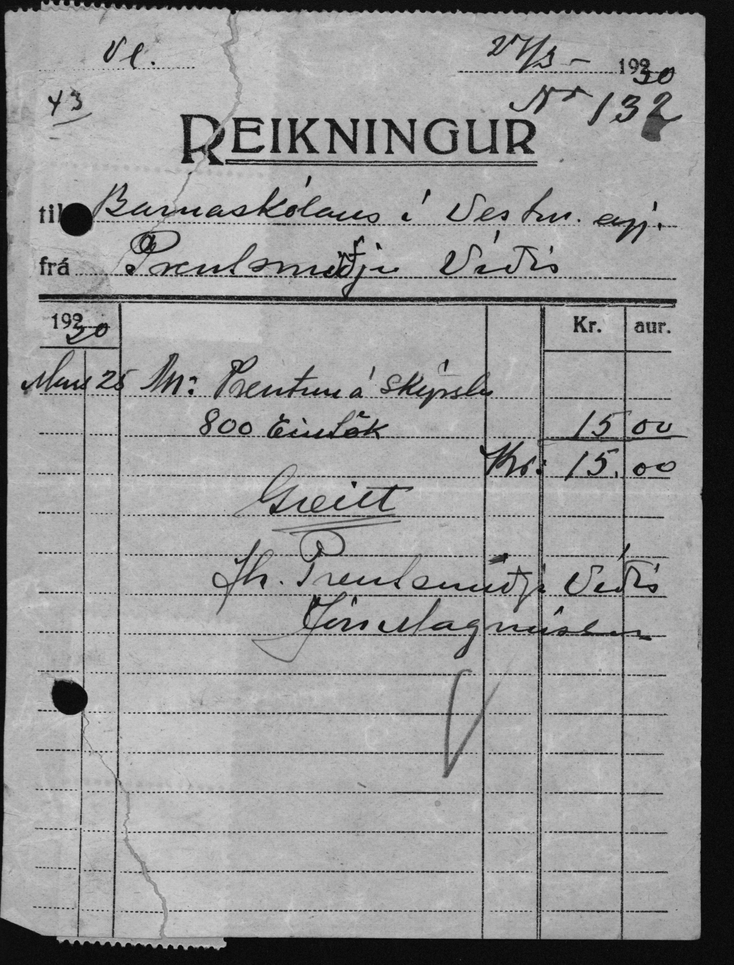 Ve. 27/3 - 1930
43 Nr 132
REIKNINGUR
til Barnaskólans í Vestm.eyj.
frá Prentsmiðju Víðis
1930 Kr. aur.
Mars 25 Prentun á skýrslu
800 Eintök 15 00
Kr: 15.00
Greitt
Prentsmiðju Víðis
Jón Magnússon